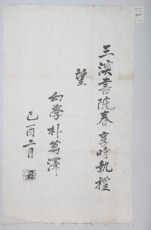 三溪書院春享時執禮
望
幼學朴篤澤
己酉二月